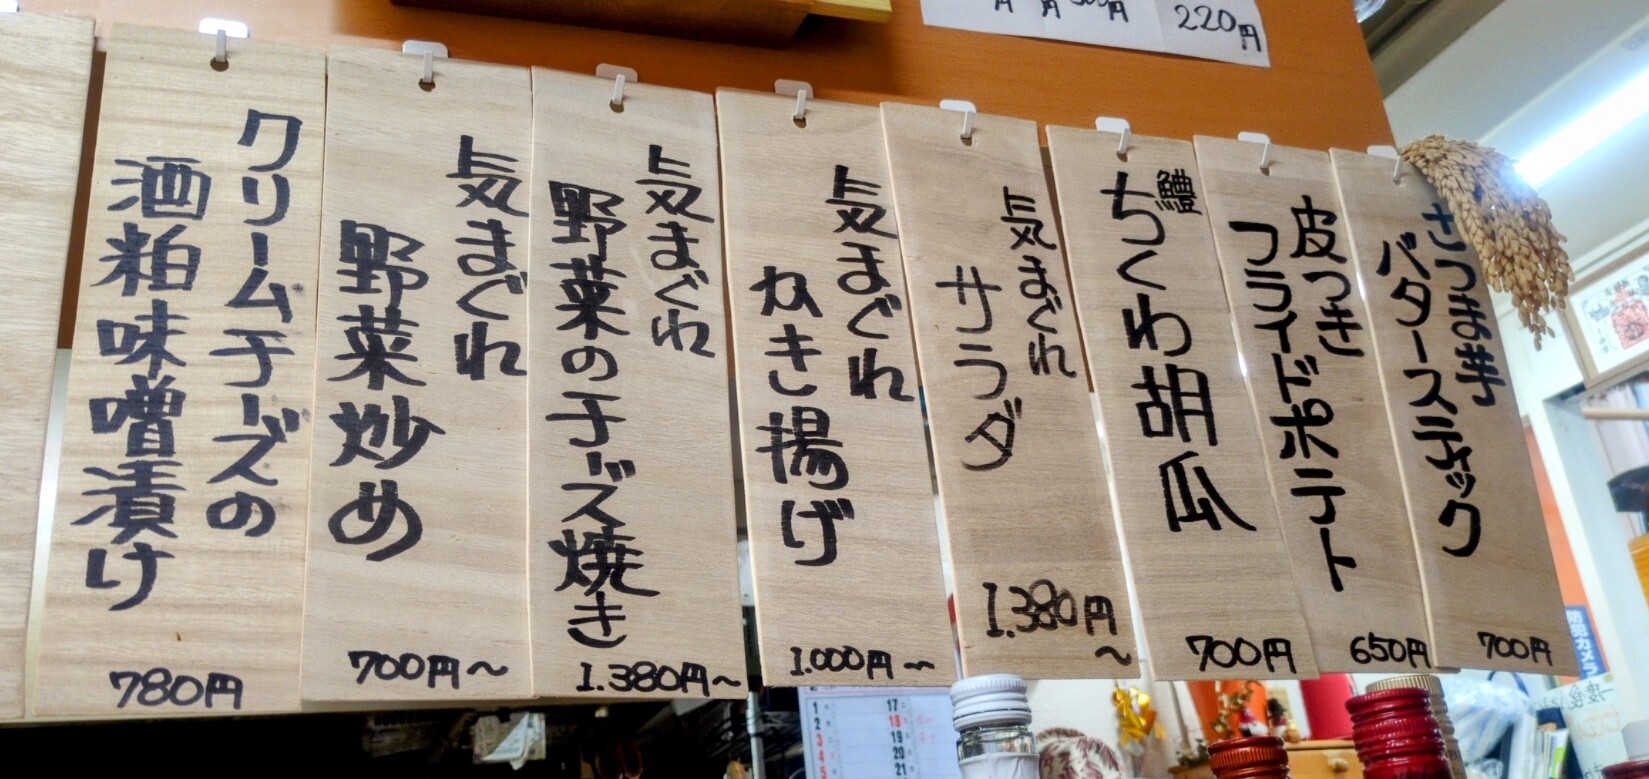 220円
さつま芋
バタースティック
700円
皮つき
フライドポテト
650円
鱧
ちくわ胡瓜
700円
気まぐれ
サラダ
1.380円
〜
気まぐれ
かき揚げ
1.000円〜
気まぐれ
野菜のチーズ焼き
1.380円〜
気まぐれ
野菜炒め
700円〜
クリームチーズの
酒粕味噌漬け
780円
防犯カメラ
1 17
2 18
3 19
4 20
5 21